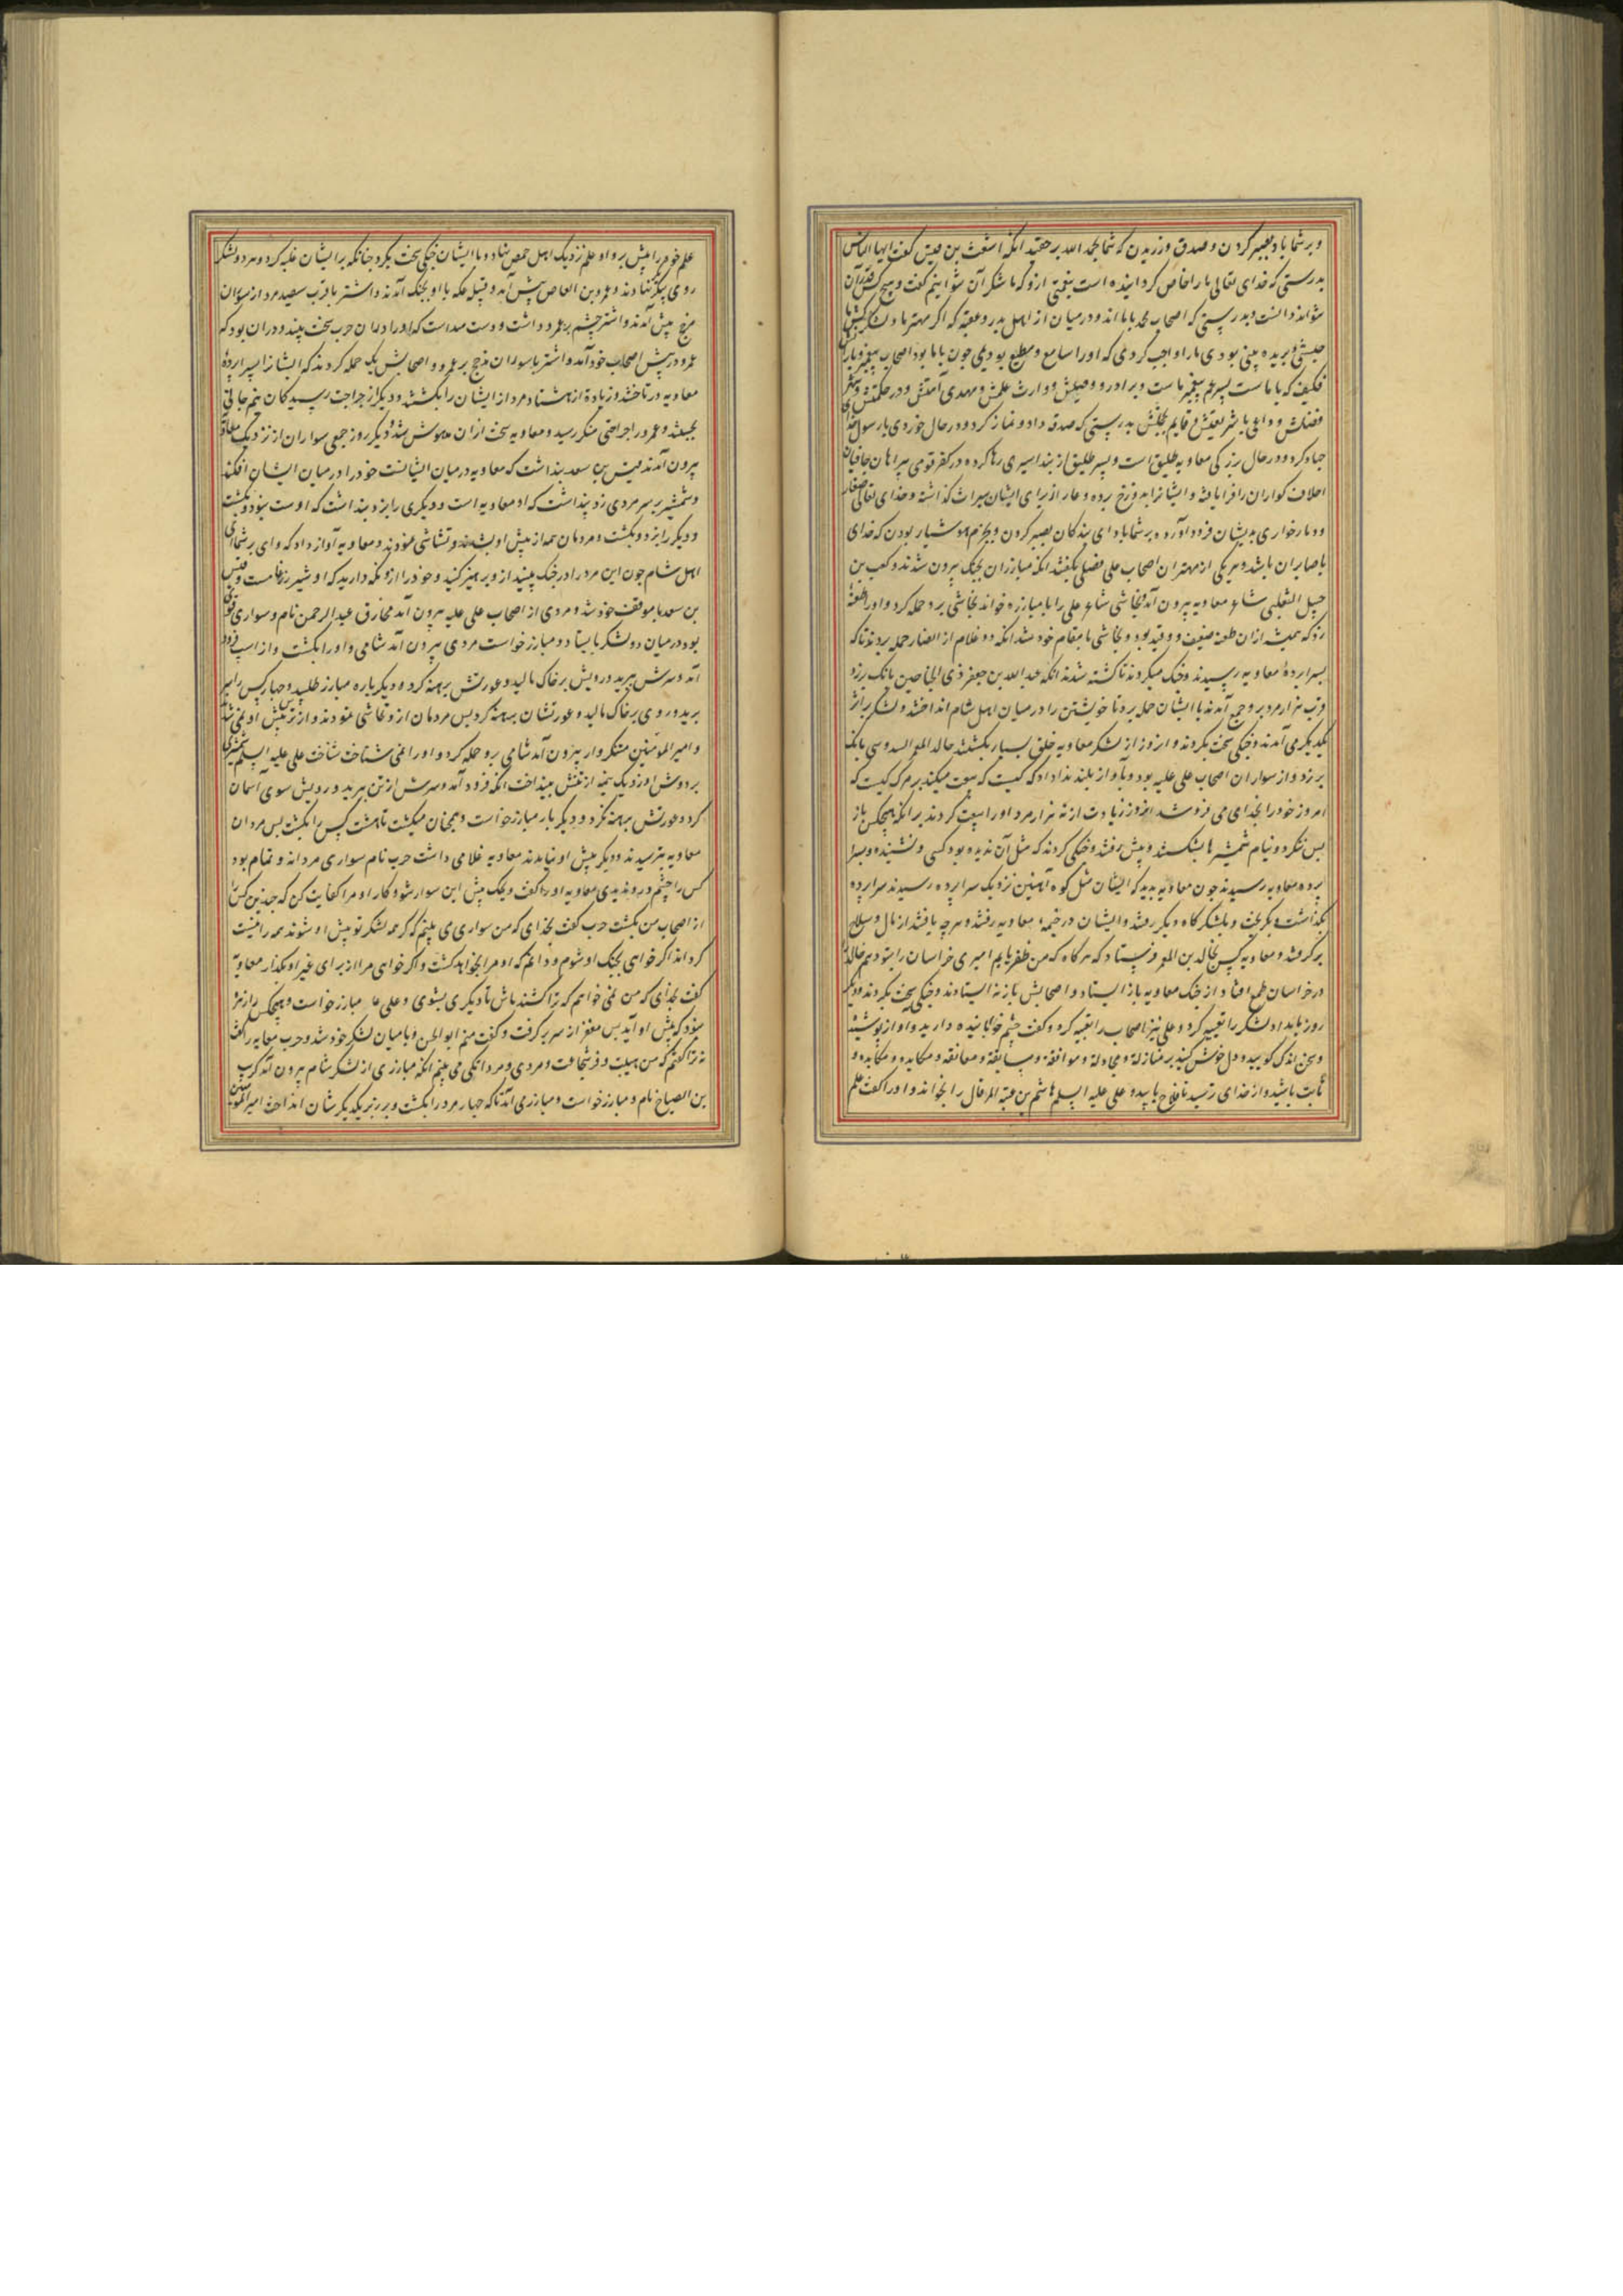 و بر شما باد بصبر کردن و صدق ورزیدن که شما بحمد الله بر حقید آنکه اشعث بن قیس گفت ایها الناس
بدرستی که خدای تعالی ما را خاص گردانیده است بنعمتی ازو که ما شکر آن نتوانیم گفت و هیچ کس قدر آن
نتواند دانست و بدرستی که اصحاب محمد با ما اند و در میان از اهل بدر و عقبه که اگر مهتر ما و لشکرکش ما
حبشی بریده بینی بودی ما را واجب کردی که او را سامع و مطیع بودیمی چون با ما بود اصحاب پیغمبر و یاران
فکیف که با ماست پسر عم پیغمبر ماست و برادر و وصیش و وارث علمش و مهدی امتش و در حکمتش و
فضلش و داعی با شریعتش و قایم بحجتش بدرستی که صدقه داد و نماز کرد و در حال خوردی با رسول خدا
جهاد کرد و در حال بزرگی معاویه طلیق است و پسر طلیق از بند اسیری رها کرده در کفر قومی پیراهان جافیان
اجلاف کواران را فرا یافته و ایشانرا بدوزخ برده و عار از برای ایشان میراث گذاشته و خدای تعالی صغار
و دمار خواری بدیشان فرود آورده بر شما باد ای بندگان بصبر کردن و بحزم و هوشیار بودن که خدای
با صابران باشد و هر یکی از مهتران اصحاب علی فصلی بگفتند آنکه مبارزان بجنگ بیرون شدند و کعب بن
جعیل التغلبی شاعر معاویه بیرون آمد نجاشی شاعر علی را با مبارزه خواند نجاشی برو حمله کرد و او را طعنهٔ
زد که بمیشد از آن طعنه ضعیف و وقید بود و نجاشی با مقام خود شد آنکه دو غلام از انصار حمله بردند تا که
بسراپردهٔ معاویه رسیدند و جنگ میکردند تا کشته شدند آنکه عبدالله بن جعفر ذی الجناحین بانک برزد
قرب هزار مرد برو جمع آمدند با ایشان حمله برد تا خویشتن را در میان اهل شام انداختند و لشکر بر اثر
یکدیگر می آمدند و جنگی سخت بکردند و ان روز از لشکر معاویه خلق بسیار بکشتند خالد المعمر السدوسی بانک
برزد و از سواران اصحاب علی علیه بود و بآواز بلند ندا داد که کیست که بیعت میکند بر مرگ کیست که
امروز خود را بخدای می فروشد ان روز زیادت از نه هزار مرد او را بیعت کردند بر آنکه هیچکس باز
پس ننگرد و نیام شمشیرها بشکستند و پیش رفتند و جنگی کردند که مثل آن ندیده بود کسی و نشنیده و بسرا
پرده معاویه رسیدند چون معاویه بدید که ایشان مثل کوه آهنین نزدیک سراپرده رسیدند سراپرده
بگذاشت و بگریخت و بلشکرگاه دیگر رفت و ایشان در خیمهٔ معاویه رفتند و هر چه یافتند از مال و سلاح
برگرفتند و معاویه کس بخالد بن المعمر فرستاد که هرگاه که من ظفر یابم امیری خراسان را بتو دهم خالد
در خراسان طمع افتاد از جنگ معاویه باز ایستاد و اصحابش باز نه ایستادند و جنگی سخت بکردند و دیگر
روز بامداد لشکر را تعبیه کرد و علی نیز اصحاب را تعبیه کرد و گفت چشم خوابانیده دارید و آواز پوشیده
و سخن اندکی گویید و دل خوش کنید بر منازله و مجادله و موافقه و مسابقه و معانقه و مکایده و مکابده و
ثابت باشید و از خدای ترسید تا فلاح یابید و علی علیه السلم هاشم بن عتبة المرقال را بخواند و او را گفت علم
علم خود را پیش بر و او علم نزدیک اهل حمص نهاد و با ایشان جنگی سخت بکرد چنانکه بر ایشان غلبه کرد و هر دو لشکر
روی بیکدیگر نهادند و عمرو بن العاص پیش آمد و قبیله عک با او بجنگ آمدند و اشتر با قرب سیصد مرد از سواران
مذحج پیش آمدند و اشتر چشم بر عمرو داشت و دست میداشت که او را در آن حرب سخت بیند و در آن بود که
عمرو در پیش اصحاب خود آمد و اشتر با سواران مذحج بر عمرو و اصحابش یک حمله کردند که ایشانرا بسراپردهٔ
معاویه در تاختند و زیاده از هشتاد مرد از ایشان را بکشتند و دیگر از جراحت رسیدگان نیم جانی
بجستند و عمرو را جراحتی منکر رسید و معاویه سخت از آن مدهوش شد و دیگر روز جمعی سواران از نزدیک معاویه
بیرون آمدند قیس بن سعد پنداشت که معاویه در میان ایشانست خود را در میان ایشان افکند
و شمشیر بر سر مردی زد پنداشت که او معاویه است و دیگری را بزد پنداشت که اوست نبود و بکشت
و دیگر را بزد و بکشت و مردمان همه از پیش او بشدند و تشاشی نمودند و معاویه آواز داد که وای بر شما ای
اهل شام چون این مرد را در جنگ ببینید ازو پرهیز کنید و خود را ازو نگه دارید که او شیر رزمگاهست و قیس
بن سعد با موقف خود شد و مردی از اصحاب علی علیه بیرون آمد مخارق عبدالرحمن نام و سواری قوی
بود در میان دو لشکر بایستاد و مبارز خواست مردی بیرون آمد شامی و او را بکشت و از اسب فرود
آمد و سرش ببرید و رویش بر خاک مالید و عورتش برهنه کرد و دیگرباره مبارز طلبید و چهار کس را سر
برید و روی بر خاک مالید و عورتشان برهنه کرد پس مردمان ازو تحاشی نمودند و از ترس پیش او نمی شدند
و امیر المؤمنین متنکروار بیرون آمد شامی برو حمله کرد و او را نمی شناخت شناخت علی علیه السلم شمشیری
بر دوش او زد یک نیمه از تنش بینداخت آنکه فرود آمد و سرش از تن ببرید و رویش سوی آسمان
کرد و عورتش برهنه نکرد و دیگر بار مبارز خواست و همچنان میکشت تا هشت کس را بکشت پس مردان
معاویه بترسیدند و دیگر پیش او نیامدند معاویه غلامی داشت حرب نام سواری مردانه و تمام بود
کس را چشم درو ندیدی معاویه او را گفت ویحک پیش این سوار شو و کار او مرا کفایت کن که چندین کس را
از اصحاب من بکشت حرب گفت بخدای که من سواری می بینم که گر همه لشکر تو پیش او شوند همه را نیست
گرداند اگر خواهی بجنگ او شوم و دانم که او مرا بخواهد کشت و اگر خواهی مرا از برای غیر او بگذار معاویه
گفت بخدای که من نمی خواهم که ترا کشند باش تا دیگری بشوی و علی علیه مبارز خواست و هیچکس را زهره
نبود که پیش او آید پس مغفر از سر برگرفت و گفت منم ابو الحسن و با میان لشکر خود شد و حرب معاویه را گفت
نه ترا گفتم که من هیبت و فر شجاعت و مردی و مردانگی می بینم آنکه مبارزی از لشکر شام بیرون آمد کریب
بن الصباح نام و مبارز خواست و مبارز می آمد تا که چهار مرد را بکشت و بر زبر یکدیگرشان انداخت امیر المؤمنین